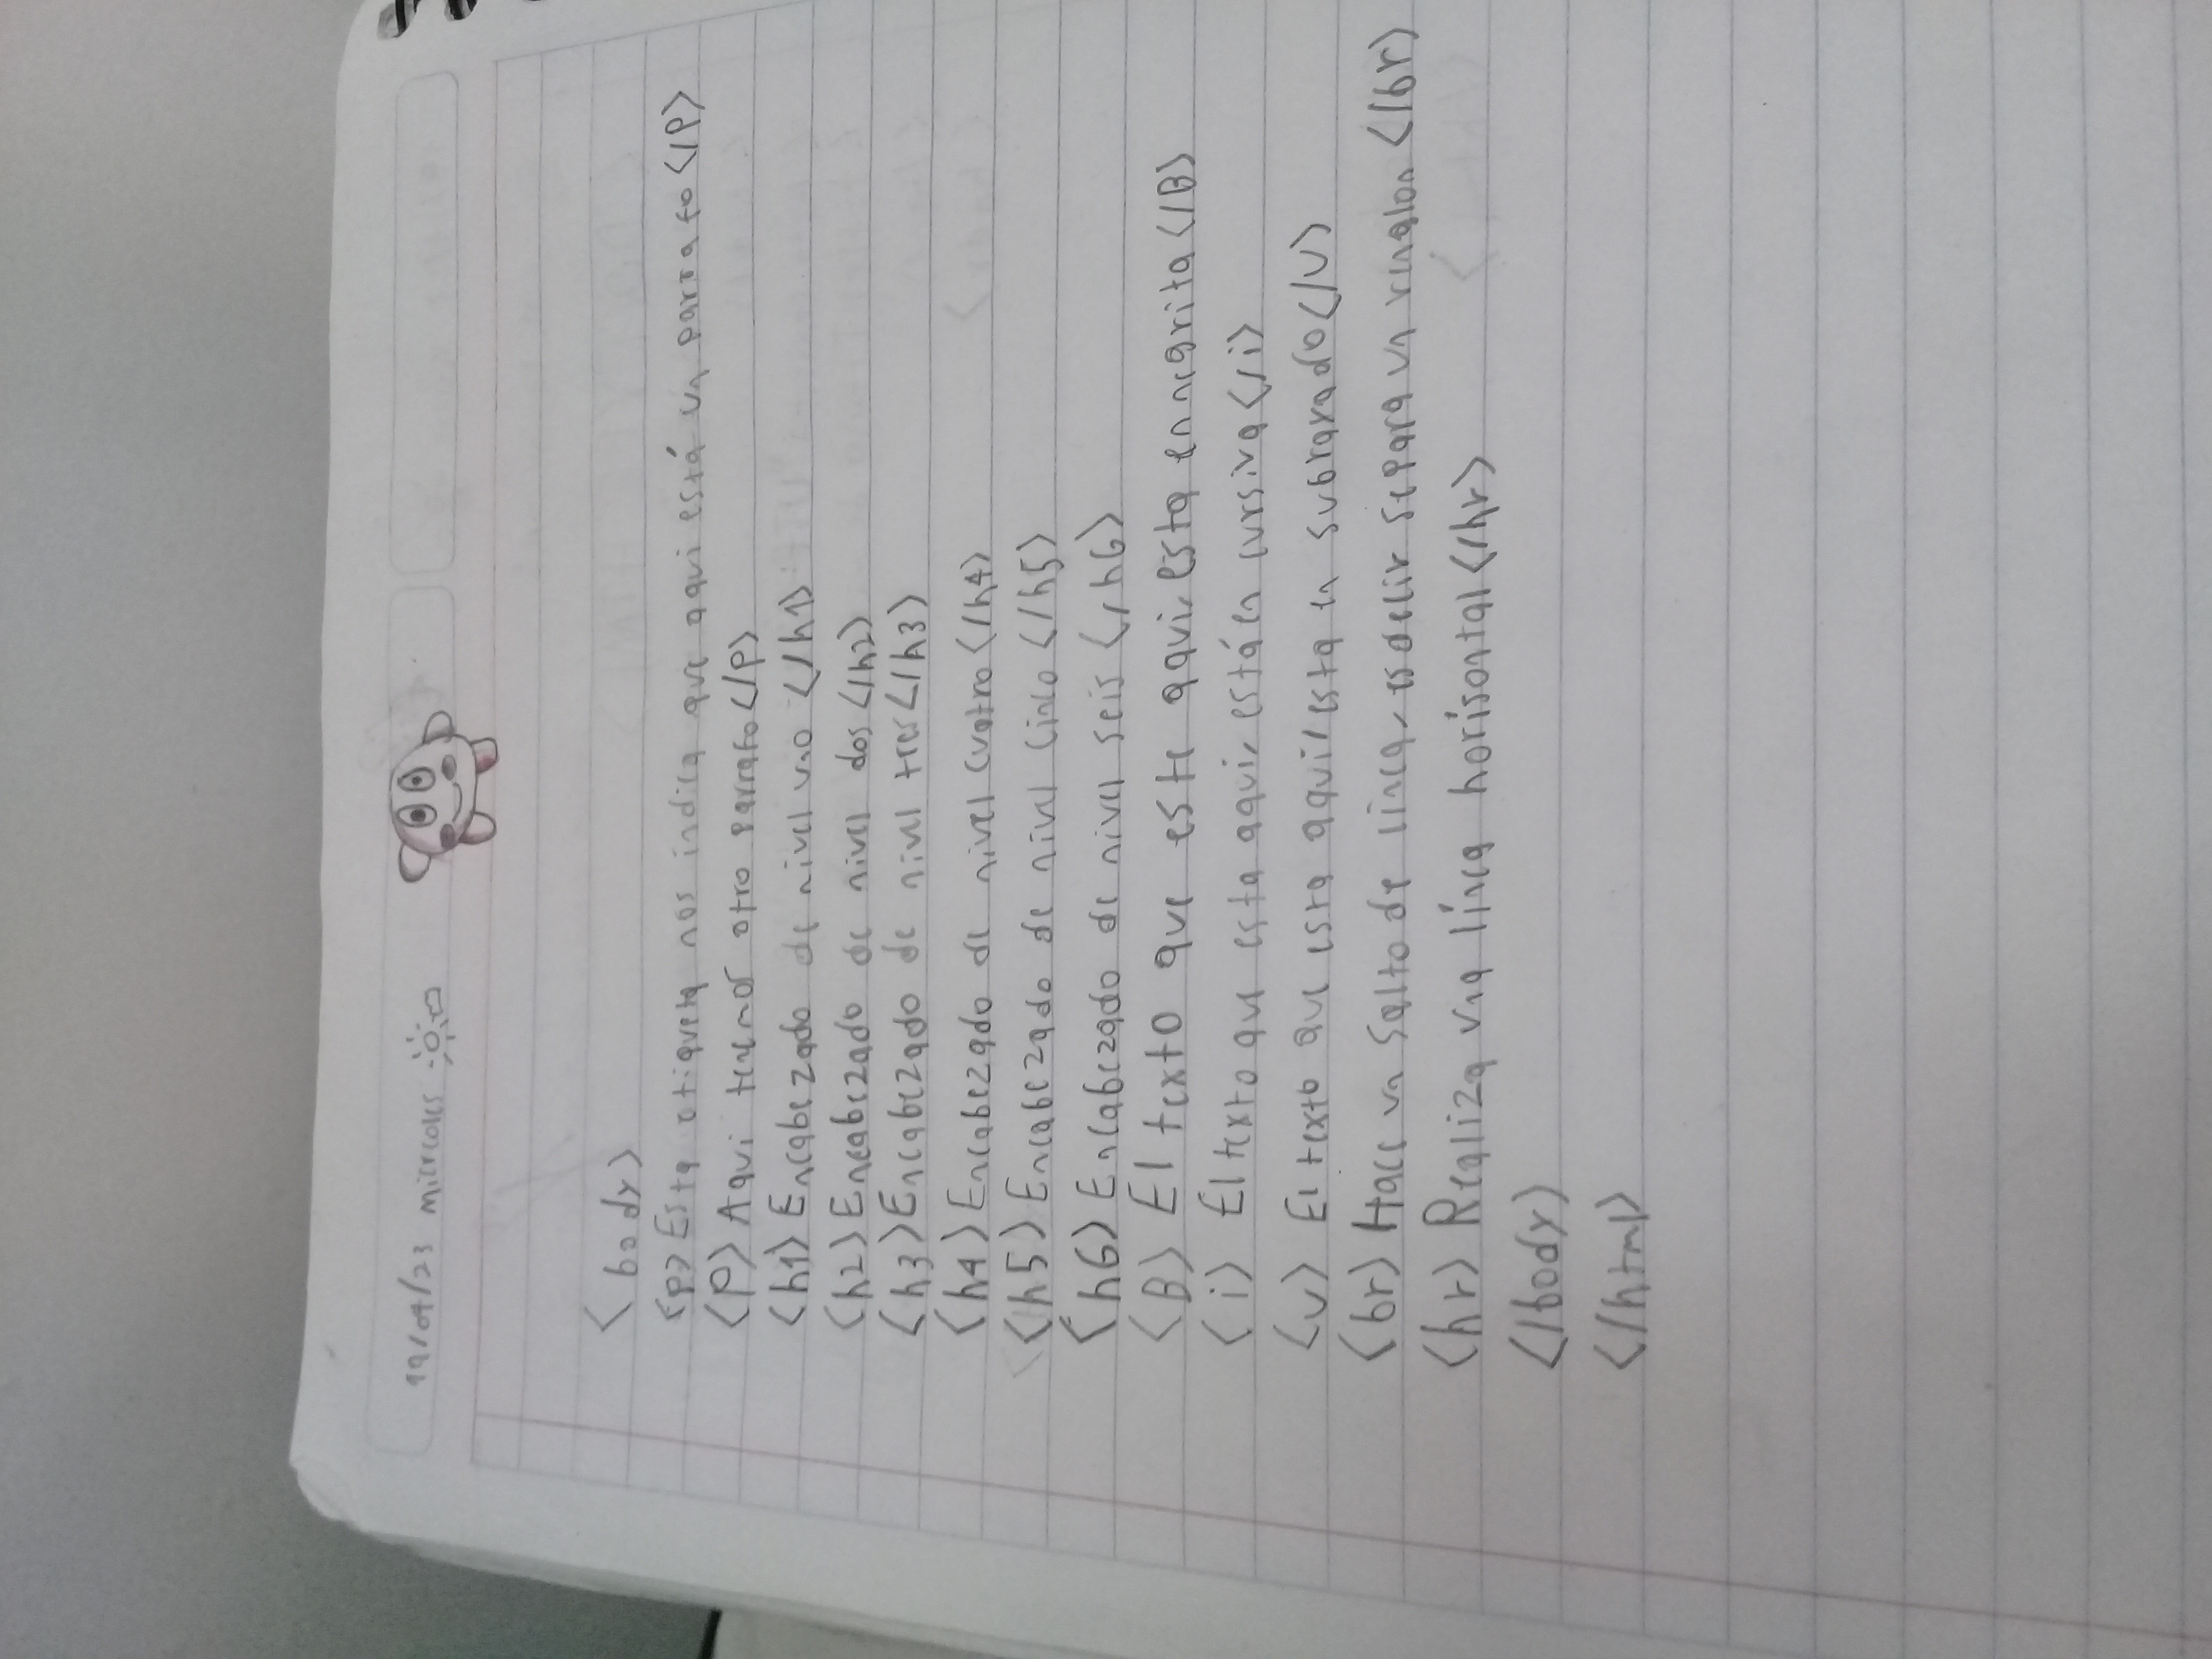 19/04/23 miercoles
<body>
<p> Esta etiqueta nos indica que aqui está un parrafo </p>
<P> Aqui tenemos otro parrafo </p>
<h1> Encabezado de nivel uno </h1>
<h2> Encabezado de nivel dos </h2>
<h3> Encabezado de nivel tres </h3>
<h4> Encabezado de nivel cuatro </h4>
<h5> Encabezado de nivel cinco </h5>
<h6> Encabezado de nivel seis </h6>
<B> El texto que este aqui, esta en negrita </B>
<i> El texto que esta aqui, está en cursiva </i>
<u> El texto que esta aqui, esta en subrayado </u>
<br> Hace un salto de linea, es decir separa un renglon </br>
<hr> Realiza una línea horisontal </hr>
</body>
</html>